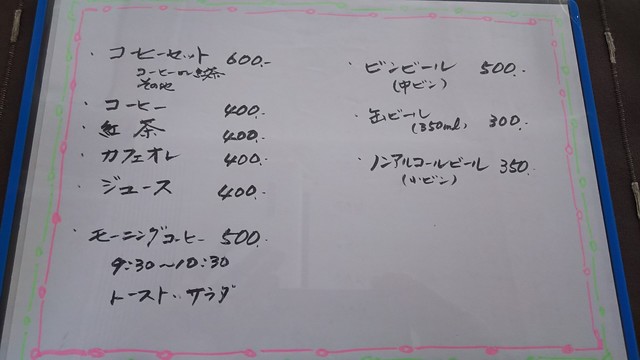 ・コーヒーセット 600.-
コーヒーor紅茶
その他
・コーヒー 400.-
・紅茶 400.-
・カフェオレ 400.-
・ジュース 400.-
・モーニングコーヒー 500.-
9:30〜10:30
トースト・サラダ
・ビンビール 500.-
(中ビン)
・缶ビール 300.-
(350ml)
・ノンアルコールビール 350.-
(小ビン)